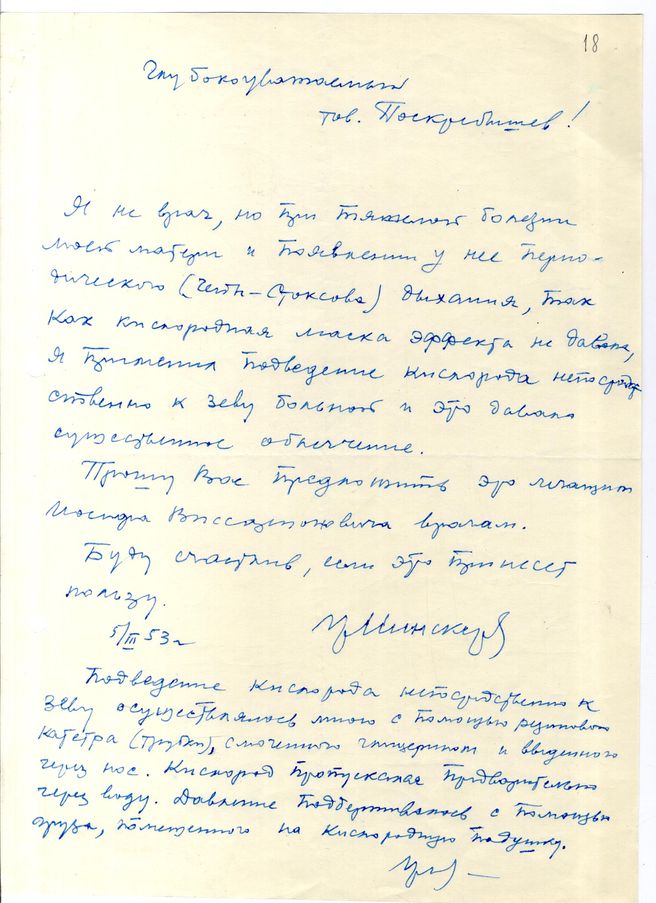 18
Глубокоуважаемый
тов. Поскребышев!
Я не врач, но при тяжелой болезни
моей матери и появлении у нее перио-
дического (Чейн-Стоксова) дыхания, так
как кислородная маска эффекта не давала,
я применил подведение кислорода непосред-
ственно к зеву больной и это давало
существенное облегчение.
Прошу Вас предложить это лечащим
Иосифа Виссарионовича врачам.
Буду счастлив, если это принесет
пользу.
5/III 53 г
Подведение кислорода непосредственно к
зеву осуществлялось мною с помощью резинового
катетра (трубки), смоченного глицерином и введенного
через нос. Кислород пропускался предворительно
через воду. Давление поддерживалось с помощью
груза, помещенного на кислородную подушку.